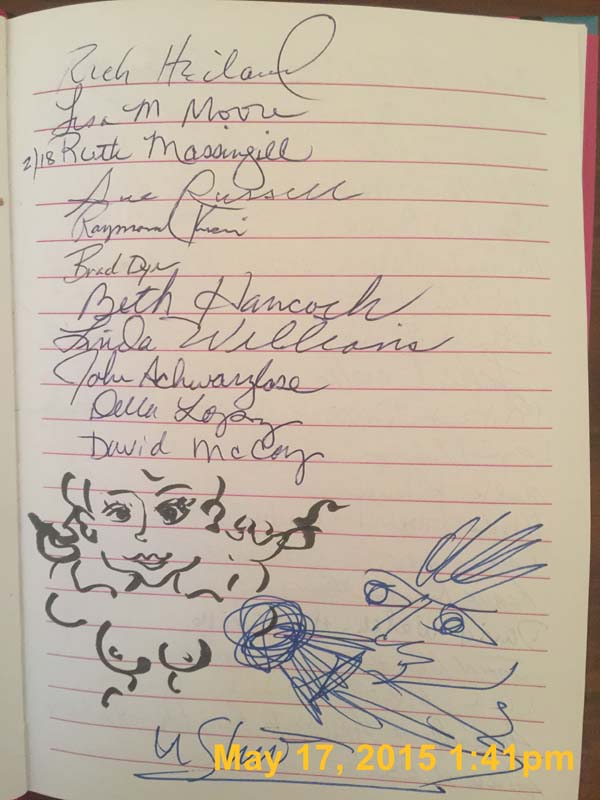 Rich Heiland
Lisa M Moore
2/18 Ruth Massingill
Sue Russell
Raymond
Brad Dyer
Beth Hancock
Linda Williams
John Schwarzlose
Della Lopez
David McCoy
May 17, 2015 1:41pm